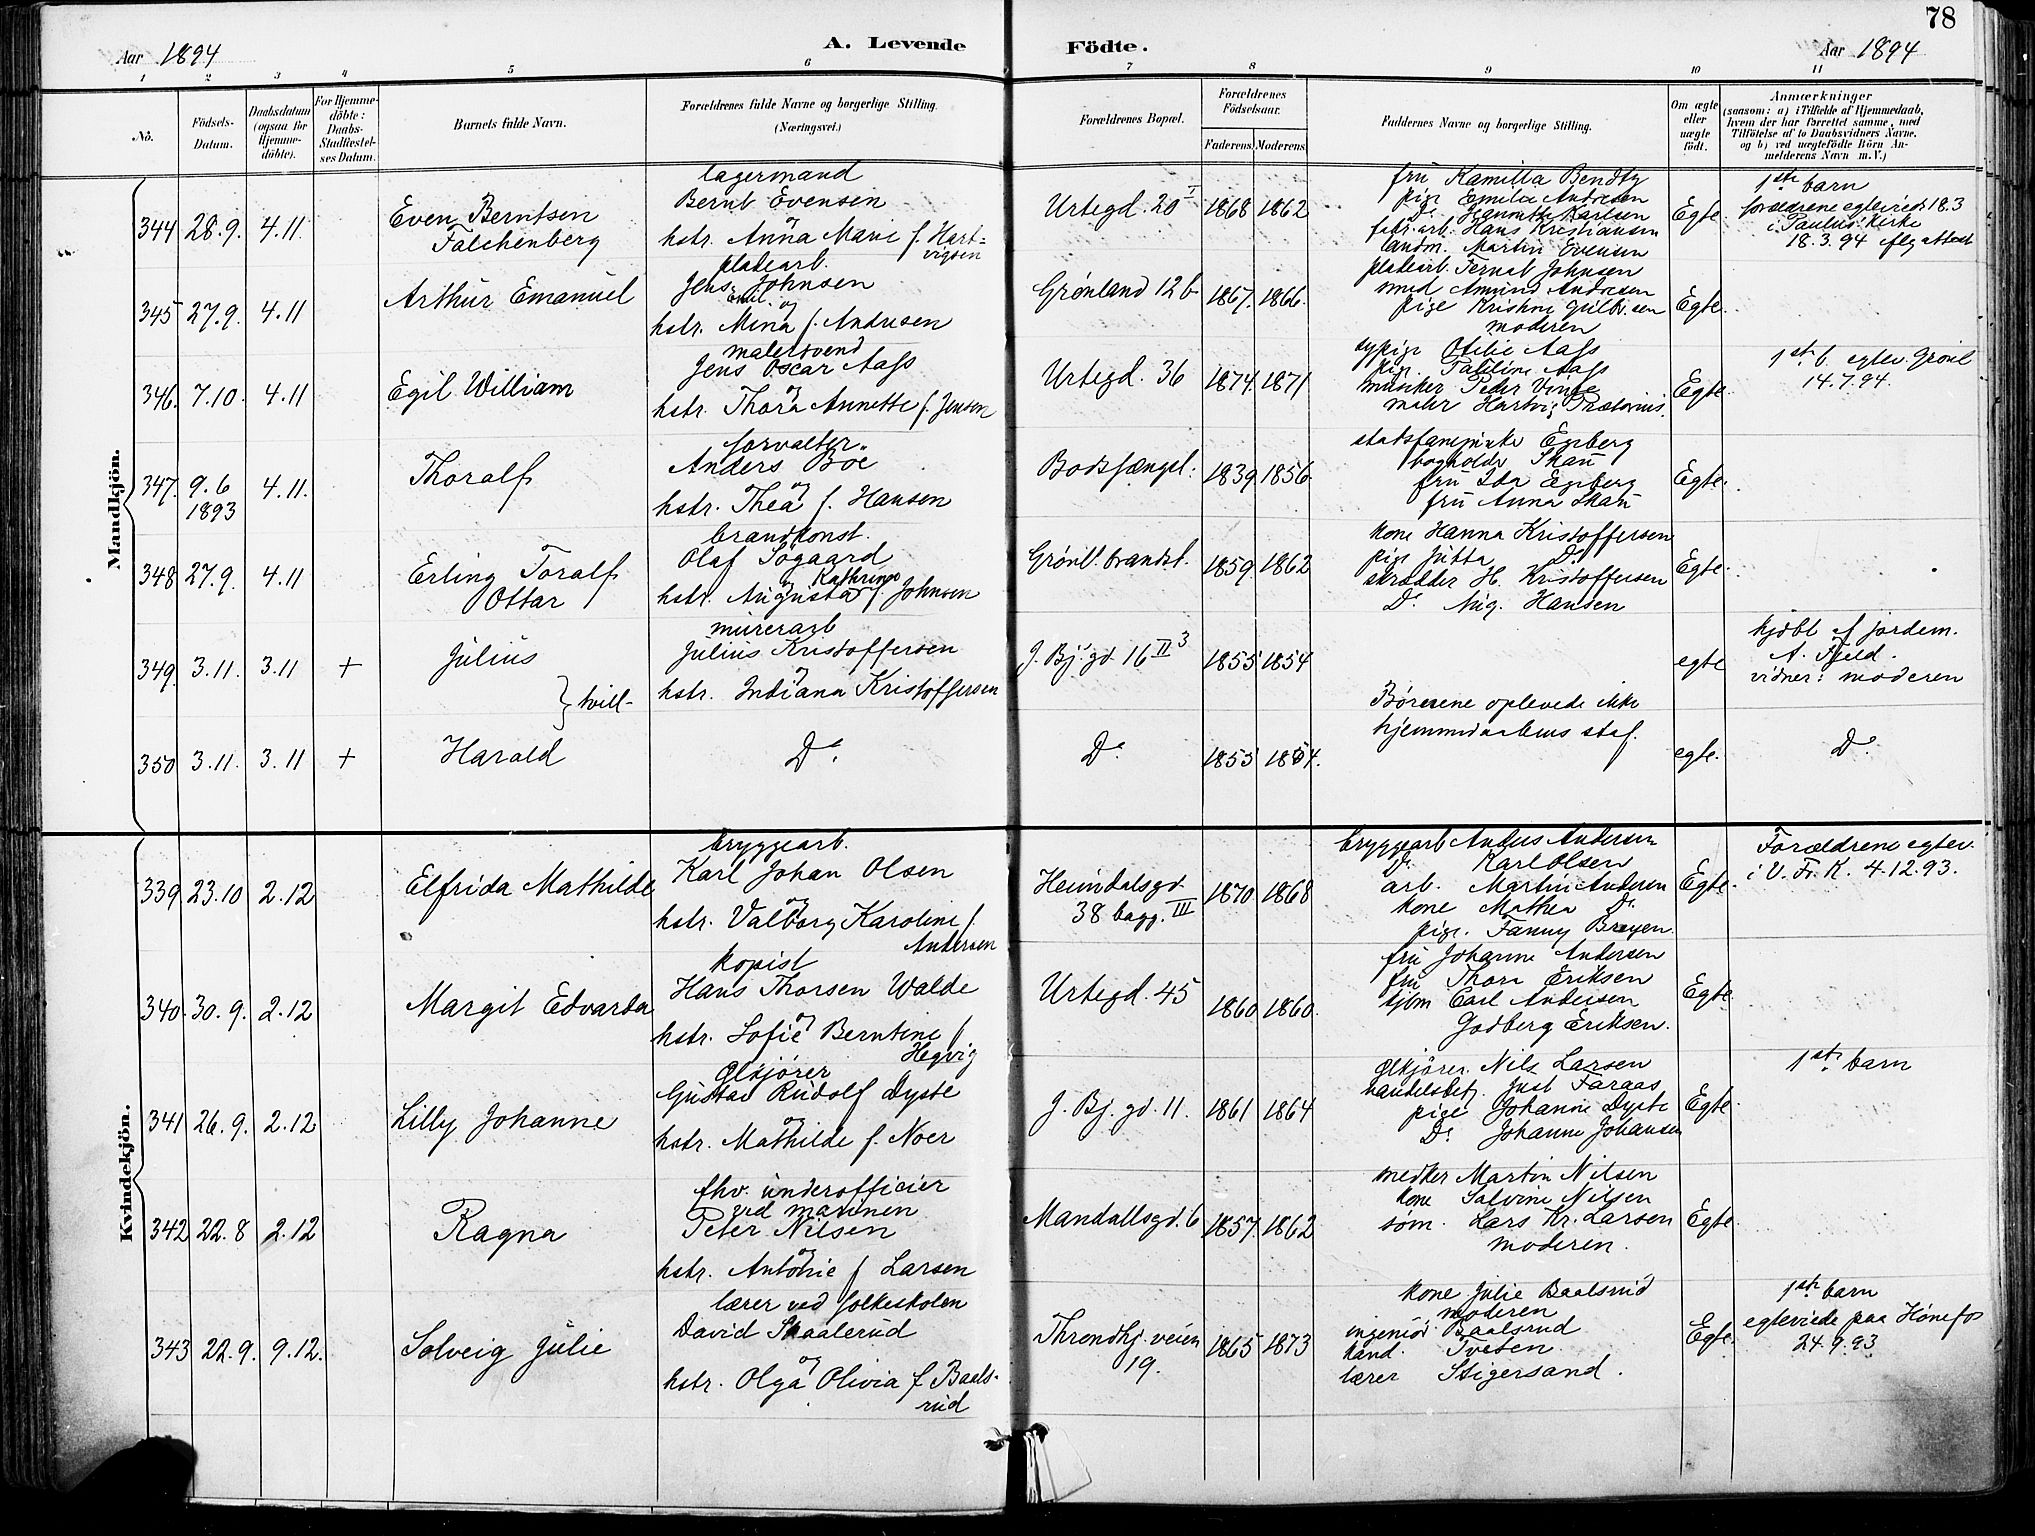 78
Aar 1894
A. Levende
Födte.
Aar 1894
1 2 3 4 5 6 7 8 9 10 11
No.
Födsels-Datum.
Daabsdatum (ogsaa for Hjemme-döbte).
For Hjemme-döbte: Daabs-Stadfæstel-ses Datum.
Barnets fulde Navn.
Forældrenes fulde Navne og borgerlige Stilling.
(Næringsvei.)
Forældrenes Bopæl.
Forældrenes Födselsaar.
Faderens. Moderens.
Faddernes Navne og borgerlige Stilling.
Om ægte eller uægte födt.
Anmærkninger
(saasom: a) i Tilfælde af Hjemmedaab,
hvem der har forrettet samme, med
Tilföielse af to Daabsvidners Navne.
og b) ved uægtefödte Börn An-
melderens Navn m.V.)
Mandkjön.
344 28.9. 4.11
Even Berntsen
Falchenberg
lagermand
Bernt Evensen
og
hstr. Anna Marie f. Hart-
vigsen
Urtegd. 20 I
1868 1862
fru Kamilla Bendtz
pige Emilie Andresen
Do Jeanette Karlsen
fabr.arb. Hans Kristiansen
landm. Martin Evensen
Egte
1ste barn
forældrene egteviet 18.3
i Paulus Kirke
18.3.94 iflg attest
345 27.9. 4.11
Arthur Emanuel
pladearb.
Jens Emil Johnsen
og
hstr. Mina f. Andresen
Grønland 12b
1867. 1866.
pladearb. Johnsen
smed Amund Andresen
pige Kristine Gulbr.sen
moderen
Egte.
346. 7.10. 4.11
Egil William
malersvend
Jens Oscar Aass
og
hstr. Thora Annette f. Jensen
Urtegd. 36
1874. 1871
sypige Otilie Aass
pige. Pauline Aass
musiker Peder Vinge
maler Hartvig Prætorius.
Egte
1ste b. egtev. Grønl
14.7.94.
347. 9.6 1893 4.11.
Thoralf
forvalter
Anders Boe
og
hstr. Thea f. Hansen
Bodsfængsl.
1839 1856
Egeberg
bogholder Skau
fru Ida Egeberg
fru Anna Skau
Egte.
348 27.9. 4.11
Erling Toralf
Ottar
brandkonst.
Olaf Søgaard
og
hstr. Augusta Kathrine f. Johnsen
Grønl. brandst.
1859 1862
kone Hanna Kristoffersen
pige Jutta Do
skrædder H. Kristoffersen
Do Aug. Hansen
Egte.
349. 3.11. 3.11 +
Julius
} tvill-
murerarb
Julius Kristoffersen
og
hstr. Indiana Kristoffersen
J. Bj. gd. 16 II 3
1855 1854
Børnene oplevede ikke
hjemmedaabens staf.
egte
hjdbt af jordem.
A. Fjeld.
vidner: moderen
350 3.11. 3.11 +
Harald
Do.
Do.
1855 1854.
egte.
Do
Kvindekjön.
339 23.10 2.12
Elfrida Mathilde
bryggearb.
Karl Johan Olsen
og
hstr. Valborg Karoline f.
Andersen
Heimdalsgd.
38 bagg. III
1870 1868
bryggearb Anders Andersen
Do Karl Olsen
arb. Martin Andersen
kone Mathea Do
pige. Fanny Brøyen.
Egte.
Forældrene egtev.
i V. Fr. K. 4.12.93.
340 30.9. 2.12
Margit Edvarda
kopist
Hans Thorsen Walde
og
hstr. Sofie Berntine f
Hegvig
Urtegd. 45
1860 1860.
fru Johanne Andersen
fru Thora Eriksen
tjbm Carl Andersen
Godberg Eriksen.
Egte.
341 26.9. 2.12
Lilly Johanne
Ølkjører
Gustav Rudolf Dyste
og
hstr. Mathilde f. Noer
J. Bj. gd. 11.
1861 1864
Ølkjører. Nils Larsen
handelsbetj. Just Faraas
pige Johanne Dyste
Do Johanne Johansen
Egte.
1ste barn
342 22.8 2.12
Ragna
fhv. underofficier
ved marinen
Peter Nilsen
og
hstr. Antonie f Larsen
Mandallsgd. 6
1857. 1862
Martin Nilsen
kone Salvine Nilsen
søm. Lars Kr. Larsen
moderen.
Egte.
343 22.9. 9.12.
Solveig Julie
lærer ved folkeskolen
David Skaalerud
og
hstr. Olga Olivia f Baals-
rud
Throndhj. veien
19.
1865 1873
kone Julie Baalsrud
moderen
ingeniør Baalsrud
kand. Tvesen.
lærer Stigersand.
Egte.
1ste barn
egteviede paa Hønefos
24.9.93